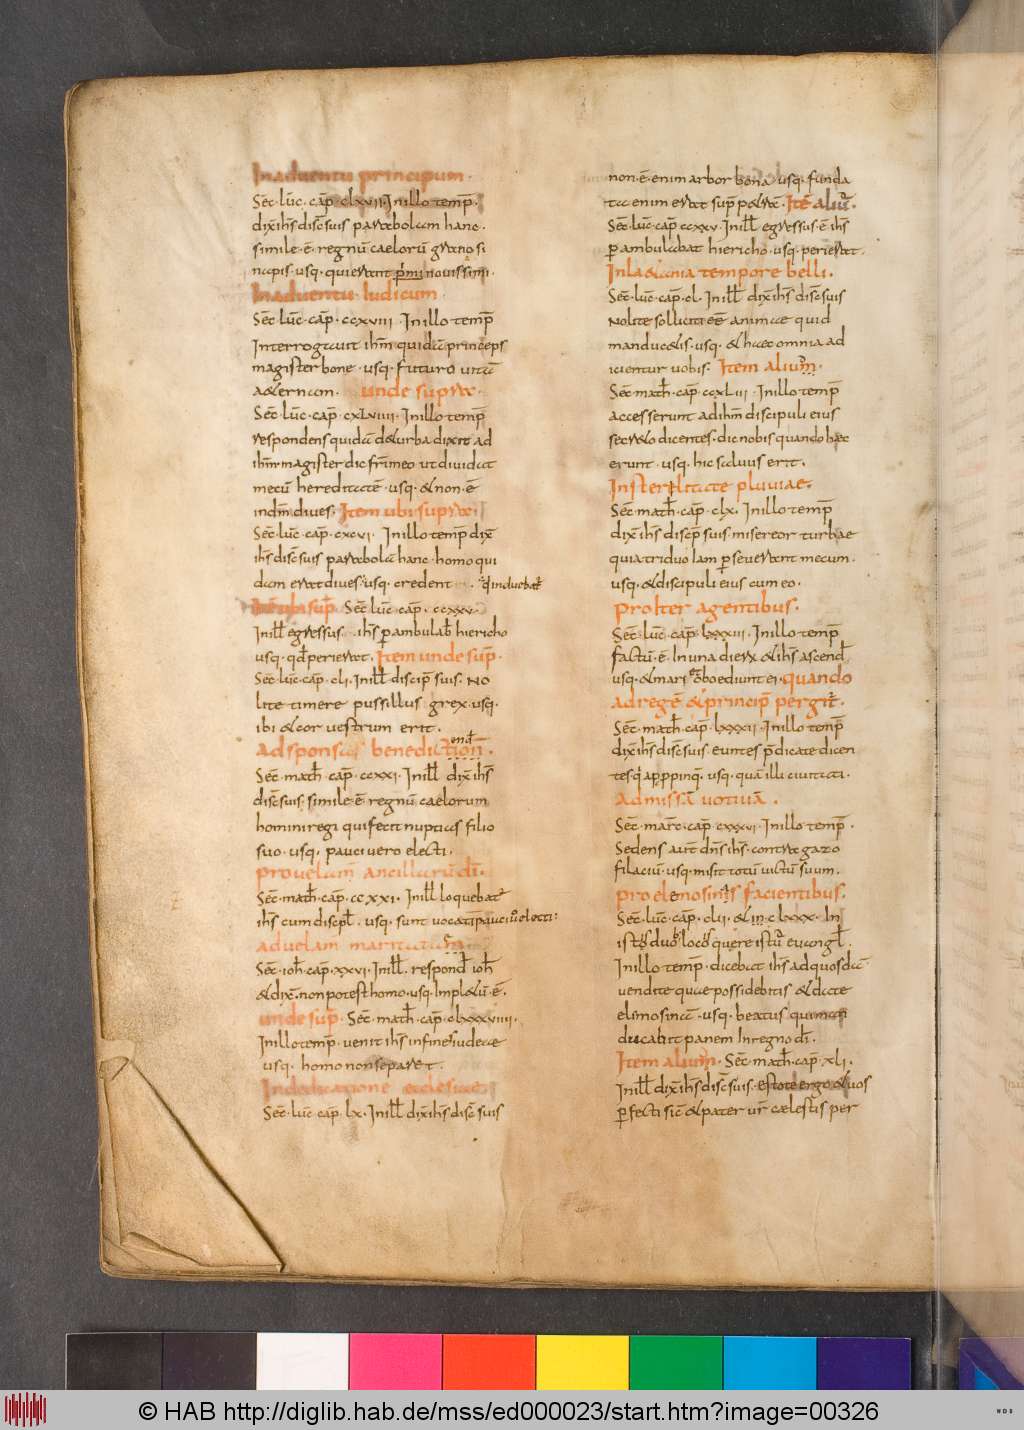 In aduentu principum.
Sec̄. luc̄. cap̄. clxxii. In illo temp̄.
dix̄ ih̄s disc̄ suis parabolam hanc.
simile. ē. regnū caelorū grano si
napis. usq. qui erant p̄mi novissimi.
In aduentu Iudicum
Sec̄. luc̄. cap̄. ccxviii. In illo temp̄
Interrogauit ih̄m quidā princeps
magister bone. usq. futuro uitā
aeternam. unde supra.
Sec̄. luc̄. cap̄. cxLviiii. In illo temp̄
respondens quidā de turba dixit ad
ih̄m magister dic fr̄i meo ut diuidat
mecū hereditatē. usq. et non. ē
in dm̄ dives. Item ubi supra.
Sec̄. luc̄. cap̄. cxcvi. In illo temp̄ dix̄
ih̄s disc̄ suis parabolam hanc. homo qui
dam erat dives. usq. credent. q̄ induebat̄
Itē ubi sup̄. Sec̄ luc̄. cap̄. ccxxv.
In ill̄ egressus. ih̄s p ambulab̄ hiericho
usq. qđ perierat. Item unde sup̄.
Sec̄. luc̄. cap̄. cli. In ill̄ discip̄ suis. No
lite timere pussillus grex. usq.
ibi et cor vestrum erit.
Ad sponsas benediction. end
Sec̄. math̄ cap̄ ccxxi. In ill̄ dix̄ ih̄s
disc̄ suis. simile ē regnū caelorum
homini regi qui fecit nuptias filio
suo. usq. pauci uero electi.
pro uelam ancillarū dī.
Sec̄. math̄. cap̄. ccxxi. In ill̄ loquebat̄
ih̄s cum discipl̄. usq. sunt vocati pauci ū electi:
ad uelam maritata m̄.
Sec̄. ioh̄. cap̄. xxvi. In ill̄. respond̄ ioh̄
et dix̄. non potest homo. usq. Impletū. ē.
unde sup̄. Sec̄. math̄. cap̄. clxxxviiii.
In illo temp̄. venit ih̄s in fines iudeae
usq. homo non separet.
In dedicatione ecclesiae.
Sec̄. luc̄ cap̄. lx. In ill̄ dix̄ ih̄s disc̄ suis
non. ē. enim arbor bona. usq. funda
ta enim erat sup̄ petrā. Itē aliū.
Sec̄. luc̄. cap̄ ccxxv. In ill̄ egressus. ē ih̄s
p ambulabat hiericho. usq. perierat.
In laetania tempore belli.
Sec̄. luc̄. cap̄. cl. In ill̄ dix̄ ih̄s disc̄ suis
Nolite solliciti eē animae quid
manducetis. usq. et haec omnia ad
icientur uobis. Item alium.
Sec̄ math̄. cap̄. ccxLiii. In illo temp̄
accesserunt ad ih̄m discipuli eius
secreto dicentes. dic nobis quando haec
erunt. usq. hic saluus erit.
In sterelitate pluuiae.
Sec̄ math̄. cap̄. clx. In illo temp̄
dix̄ ih̄s discip̄ suis misereor turbae
quia triduo Iam p seuerant mecum.
usq. et discipuli eius cum eo.
pro Iter agentibus.
Sec̄. luc̄. cap̄. lxxxiii. In illo temp̄
factū. ē In una dierū et ih̄s ascend̄
usq. et mare oboediunt ei. quando
ad regē et principē pergit̄.
Sec̄. math̄. cap̄. lxxxii. In illo temp̄
dix̄ ih̄s disc̄ suis euntes p̄dicate dicen
tes q apppinq̄. usq. quā illi ciuitati.
Ad missā uotiuā.
Sec̄. marc̄. cap̄. cxxxvi. In illo temp̄.
Sedens aut dn̄s ih̄s. contra gazo
filaciū. usq. misit totū uictū suum.
pro elemosinis facientibus.
Sec̄. luc̄. cap̄. clii. et in clxxx. In
istos duos locos quere istū euangl̄.
In illo temp̄. dicebat ih̄s ad quosdā
vendite quae possidebitis et date
elimosinā. usq. beatus qui man
ducabit panem In regno dī.
Item alium. Sec̄ math̄. cap̄. xli.
In ill̄ dix̄ ih̄s disc̄ suis. estote ergo et vos
pfecti sic̄ et pater ur̄ cælestis per
© HAB http://diglib.hab.de/mss/ed000023/start.htm?image=00326